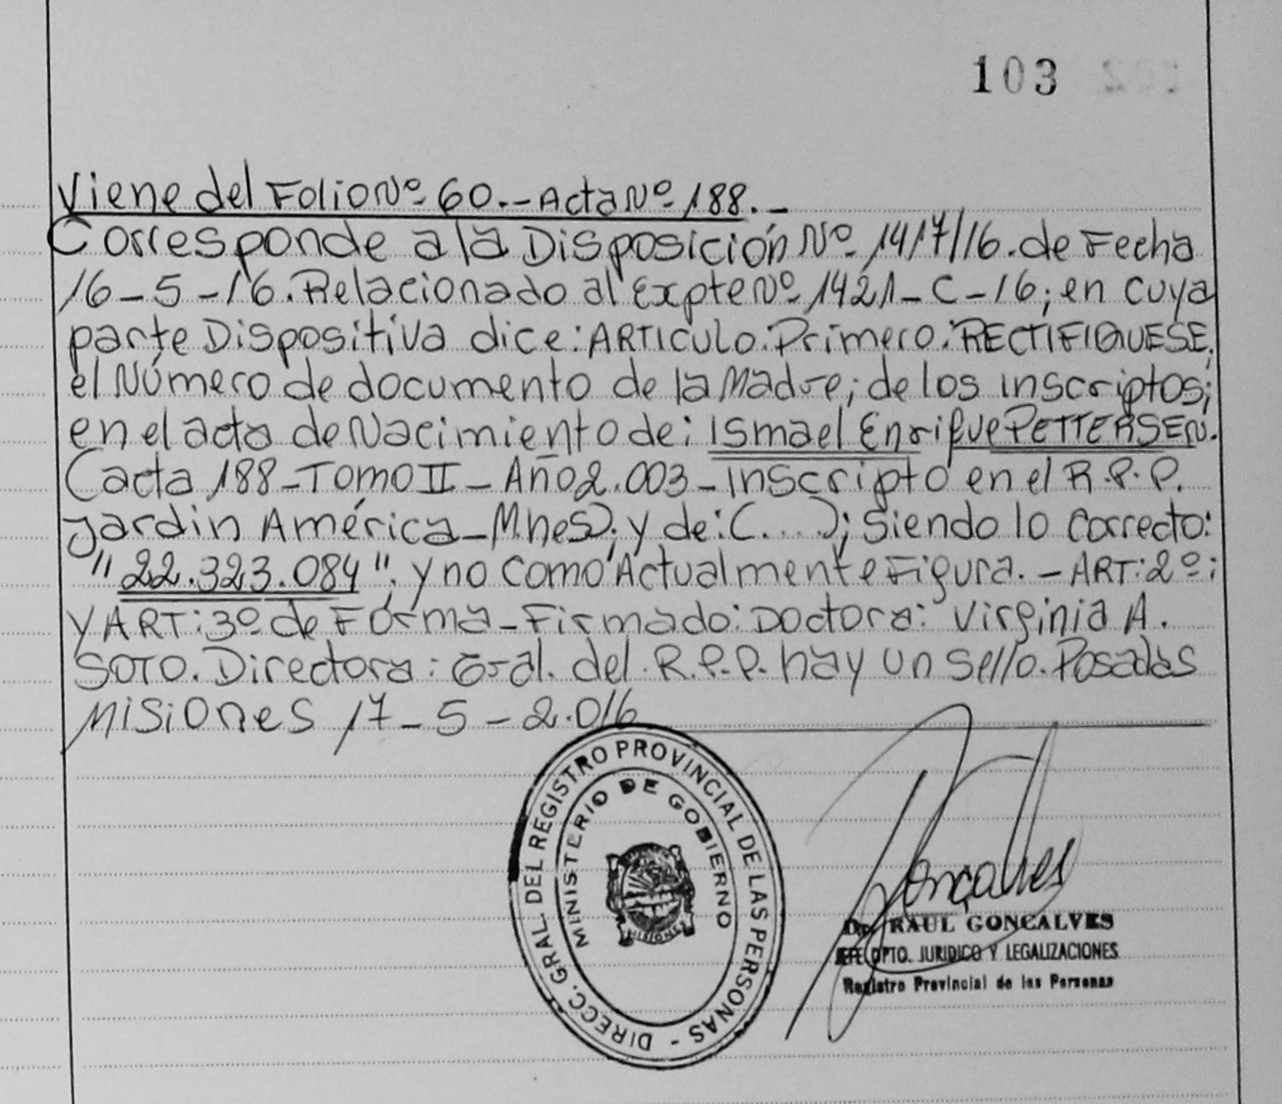 103
Viene del Folio Nº 60.- Acta Nº 188.-
Corresponde a la Disposición Nº 1417/16. de Fecha
16-5-16. Relacionado al Expte Nº 1421-C-16; en cuya
parte Dispositiva dice: ARTICULO: Primero: RECTIFIQUESE.
el Número de documento de la Madre; de los inscriptos;
en el acta de Nacimiento de: Ismael Enrique PETTERSEN.
(acta 188-TOMO II - Año 2.003-Inscripto en el R.P.P.
Jardin América-Mnes); y de: (....); Siendo lo correcto:
"22.323.084"; y no como Actualmente Figura. - ART: 2º;
Y ART: 3º de Forma-Firmado: Doctora: Virginia A.
SOTO. Directora: Gral. del R.P.P. hay un sello. Posadas
Misiones 17-5-2.016
DIRECC. GRAL. DEL REGISTRO PROVINCIAL DE LAS PERSONAS -
MINISTERIO DE GOBIERNO
MISIONES
Gonçalves
Dr. RAUL GONCALVES
JEFE DPTO. JURIDICO Y LEGALIZACIONES
Registro Provincial de las Personas